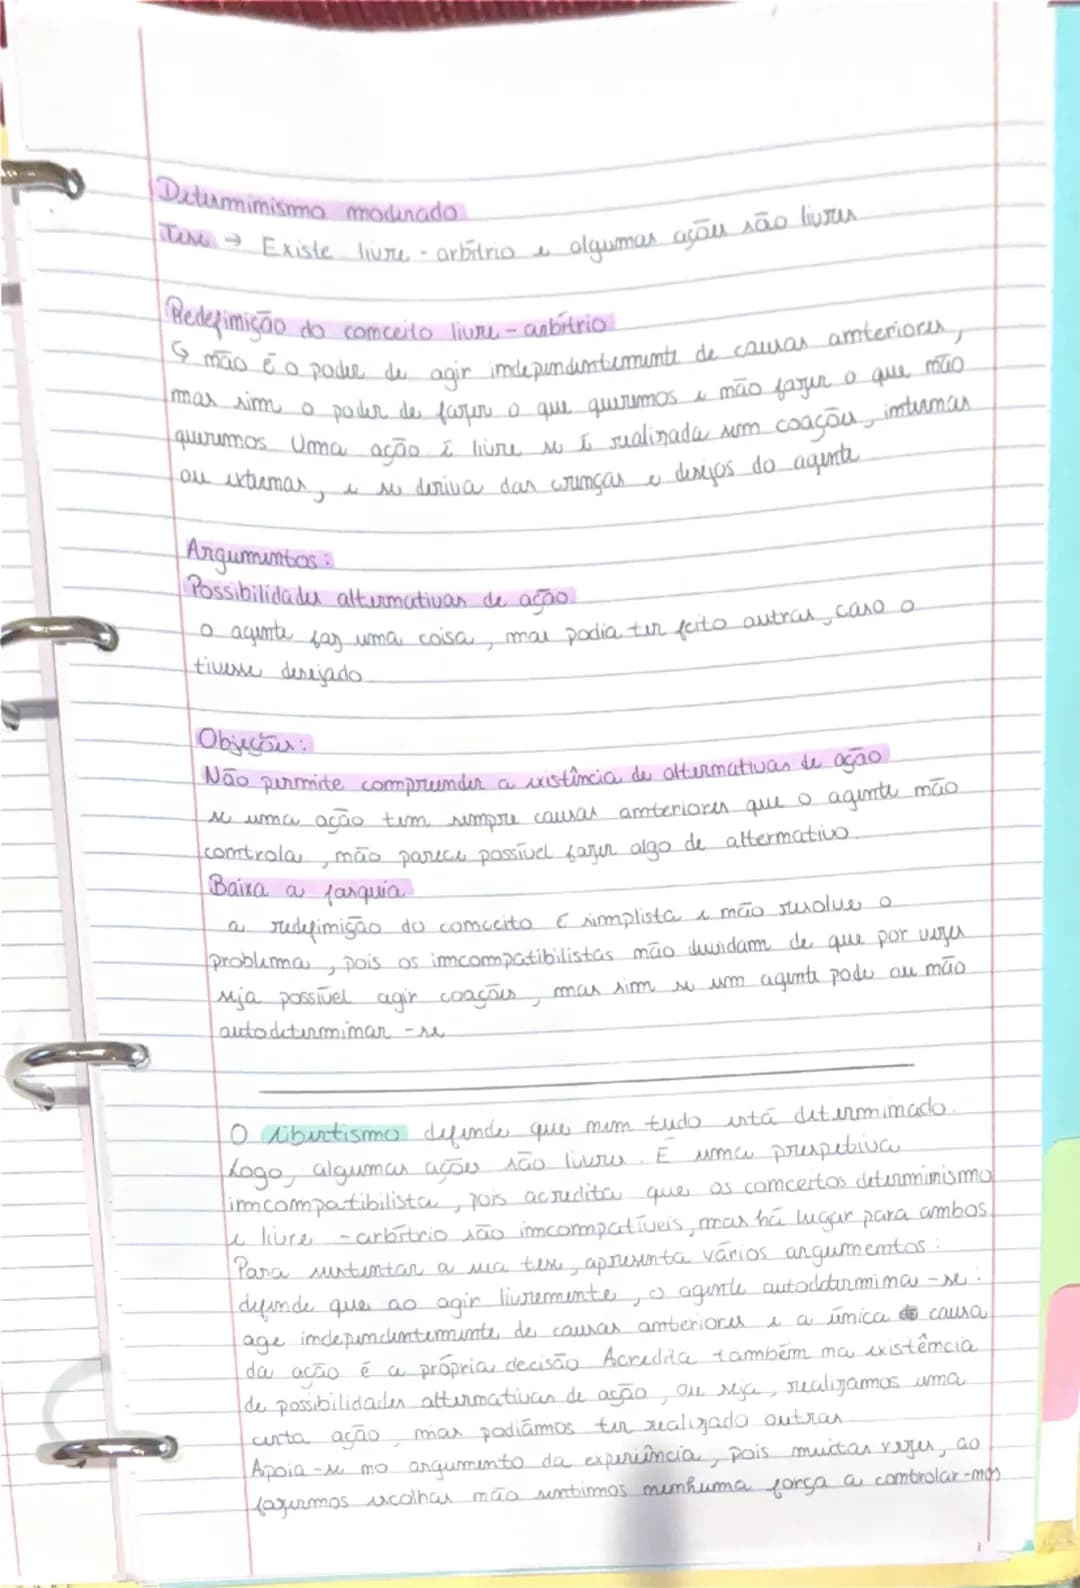 Determinismo moderado
Tese → Existe livre-arbítrio e algumas ações são livres
Redefinição do conceito livre-arbítrio
↳ não é o poder de agir independentemente de causas anteriores,
mas sim o poder de fazer o que queremos e não fazer o que não
queremos. Uma ação é livre se é realizada sem coações, internas
ou externas, e se deriva das crenças e desejos do agente
Argumentos:
Possibilidades alternativas de ação
o agente faz uma coisa, mas podia ter feito outras, caso o
tivesse desejado.
Objeções:
Não permite compreender a existência de alternativas de ação
se uma ação tem sempre causas anteriores que o agente não
controla, não parece possível fazer algo de alternativo.
Baixa a fasquia
a redefinição do conceito é simplista e não resolve o
problema, pois os incompatibilistas não duvidam de que por vezes
seja possível agir coações, mas sim se um agente pode ou não
autodeterminar-se
O libertismo defende que nem tudo está determinado.
Logo, algumas ações são livres. É uma prespetiva
incompatibilista, pois acredita que os conceitos determinismo
e livre-arbítrio são incompatíveis, mas há lugar para ambos.
Para sustentar a sua tese, apresenta vários argumentos:
defende que ao agir livremente, o agente autodetermina-se:
age independentemente de causas anteriores e a única causa
da ação é a própria decisão. Acredita também na existência
de possibilidades alternativas de ação, ou seja, realizamos uma
certa ação, mas podíamos ter realizado outras
Apoia-se no argumento da experiência, pois muitas vezes, ao
fazermos escolhas não sentimos nenhuma força a controlar-nos